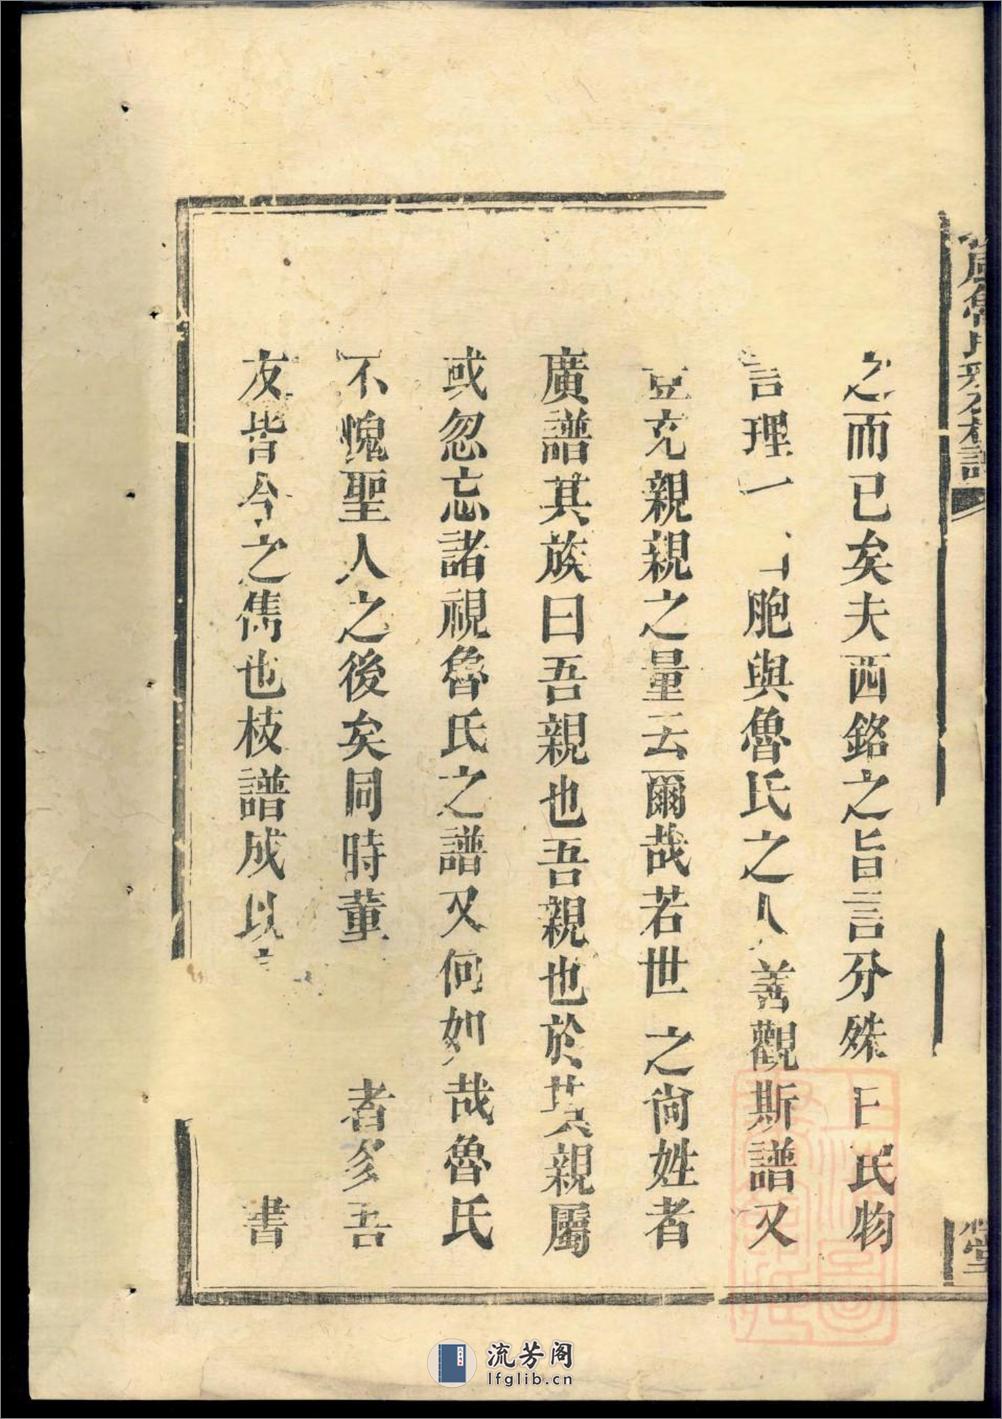 之而已矣夫西銘之旨言分殊曰民物
言理一 胞與魯氏之人善觀斯譜又
豈充親親之量云爾哉若世之尚姓者
廣譜其族曰吾親也吾親也於其親屬
或忽忘諸視魯氏之譜又何如哉魯氏
不愧聖人之後矣同時董 者多吾
友皆今之儁也枝譜成以 書
魯氏 譜
堂
流芳阁
lfglib.cn